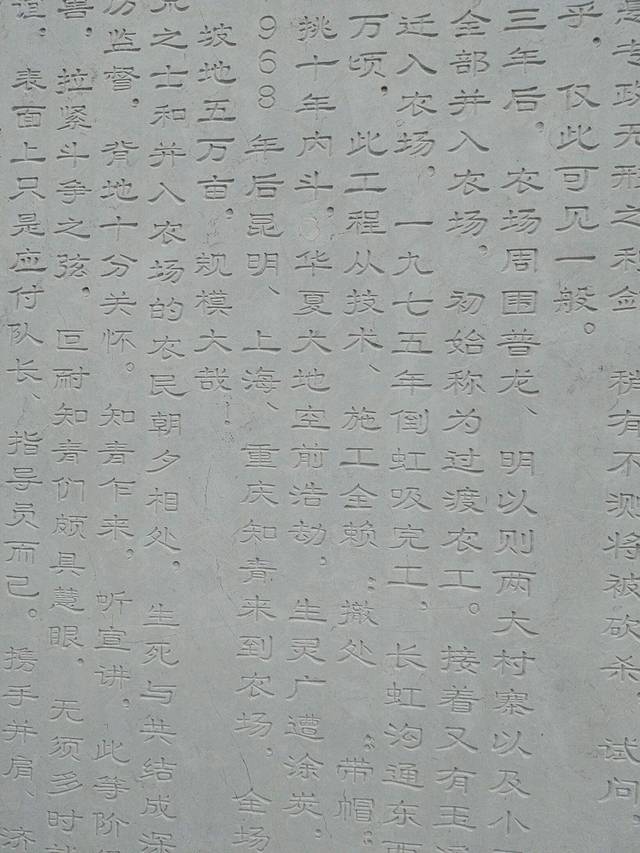 专政无形之利剑 稍有不测将被砍杀 试问，
乎，仅此可见一般。
三年后，农场周围普龙、明以则两大村寨以及小
全部并入农场，初始称为过渡农工。接着又有玉
迁入农场，一九七五年倒虹吸完土，长虹沟通东西
万顷，此工程从技术、施工全赖：撤处：带帽：
挑十年内斗，华夏大地空前浩劫，生灵广遭涂炭，
968年后昆明、上海、重庆知青来到农场，全场
坡地五万亩，规模大哉！
之士和并入农场的农民朝夕相处，生死与共结成深
历监督，背地十分关怀。知青乍来，听宣讲，此等阶
害，拉紧斗争之弦，叵耐知青们颇具慧眼，无须多时就
谊，表面上只是应付队长、指导员而已。携手并肩、济